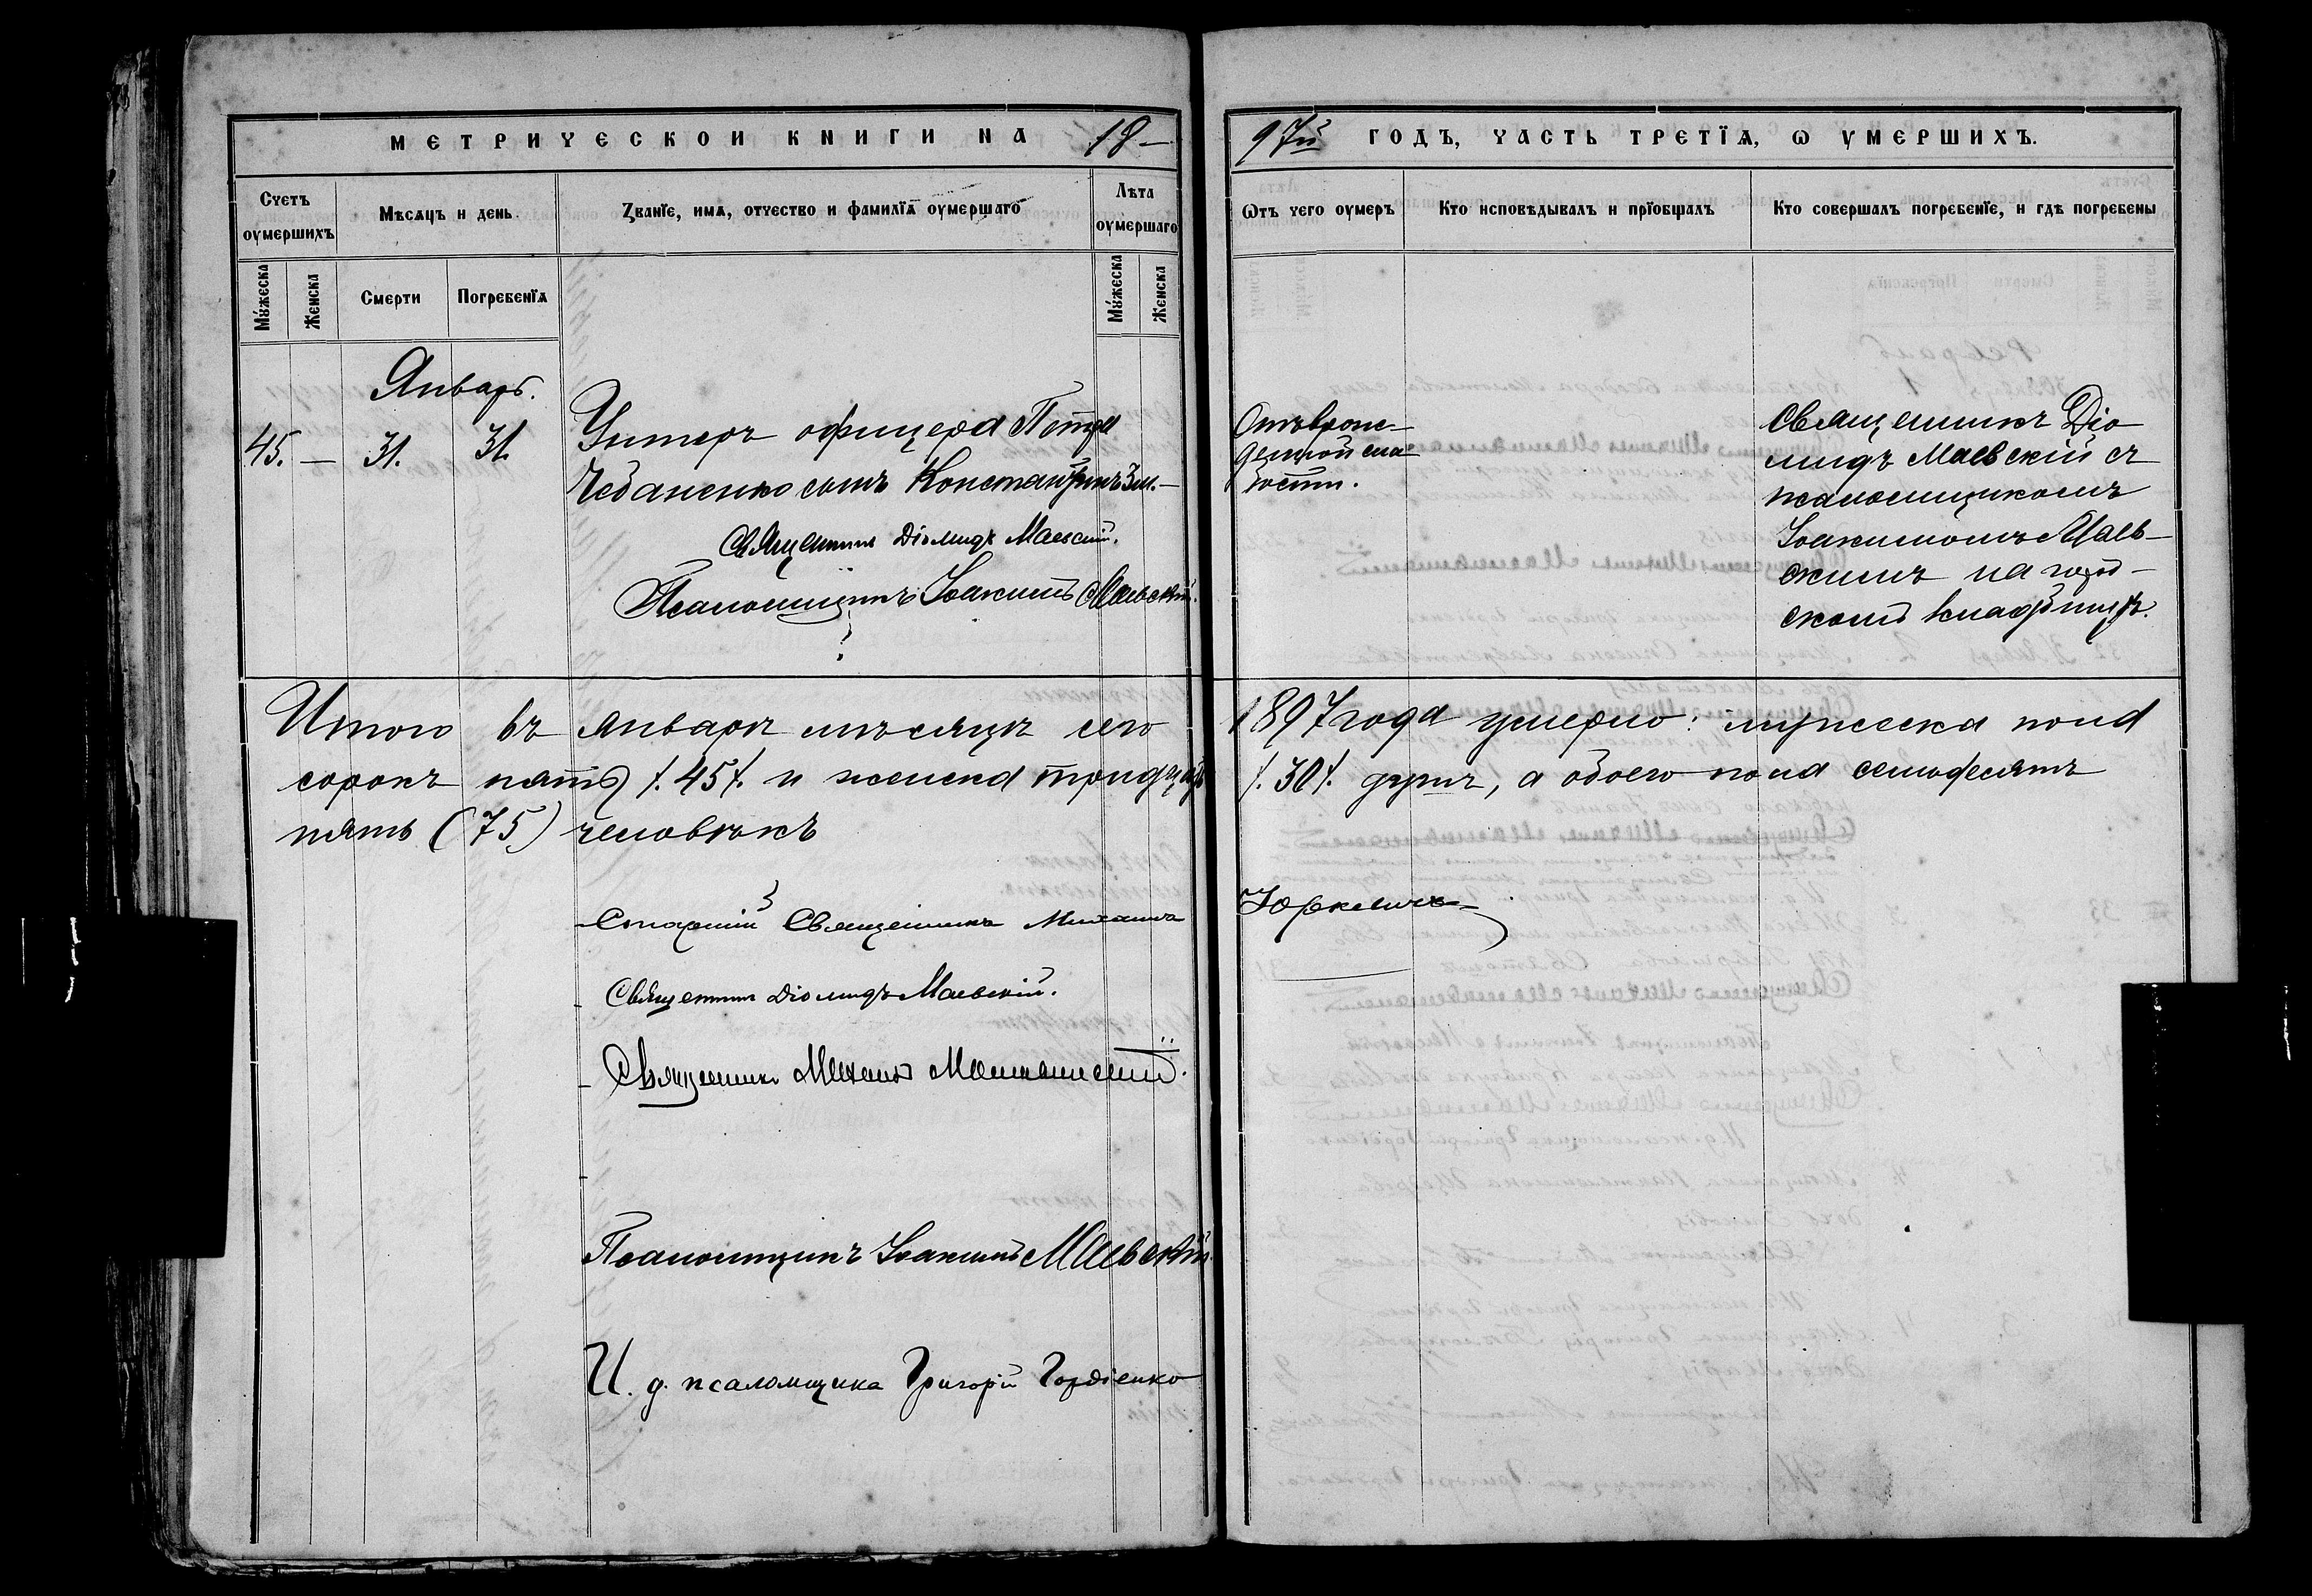 МЕТРИЧЕСКОИ КНИГИ НА 18-
97й ГОДЪ, ЧАСТЬ ТРЕТІѦ, Ѡ УМЕРШИХЪ.
Счетъ оумершихъ
Мѣсѧцъ и день
Званїе, имѧ, отчество и фамилїѧ оумершагѡ
Лѣта оумершаго
Ѿтъ чего оумеръ
Кто исповѣдывалъ и прїобщалъ
Кто совершалъ погребенїе, и гдѣ погребены
Мужеска
Женска
Смерти
Погребенїѧ
Мужеска
Женска
Январь.
45. — 31. 31.
Унтеръ офицера Петра
Чебаненко сынъ Константинъ 3 м. —
Священникъ Діомидъ Маевскій.
Псаломщикъ Іоакимъ Маевскій.
Отъ врож-
денной сла-
бости.
Священникъ Діо-
мидъ Маевскій съ
псаломщикомъ
Іоакимомъ Маев-
скимъ на город-
скомъ кладбищѣ.
Итого въ январѣ мѣсяцѣ сего 1897 года умерло: мужеска пола
сорокъ пять /.45/. и женска тридцать /.30/. душъ, а обоего пола семьдесятъ
пять (75) человѣкъ
Старшій Священникъ Михаилъ Юркевичъ
Священникъ Діомидъ Маевскій.
Священникъ Михаилъ
Псаломщикъ Іоакимъ Маевскій.
И. д. псаломщика Григорій Гордіенко